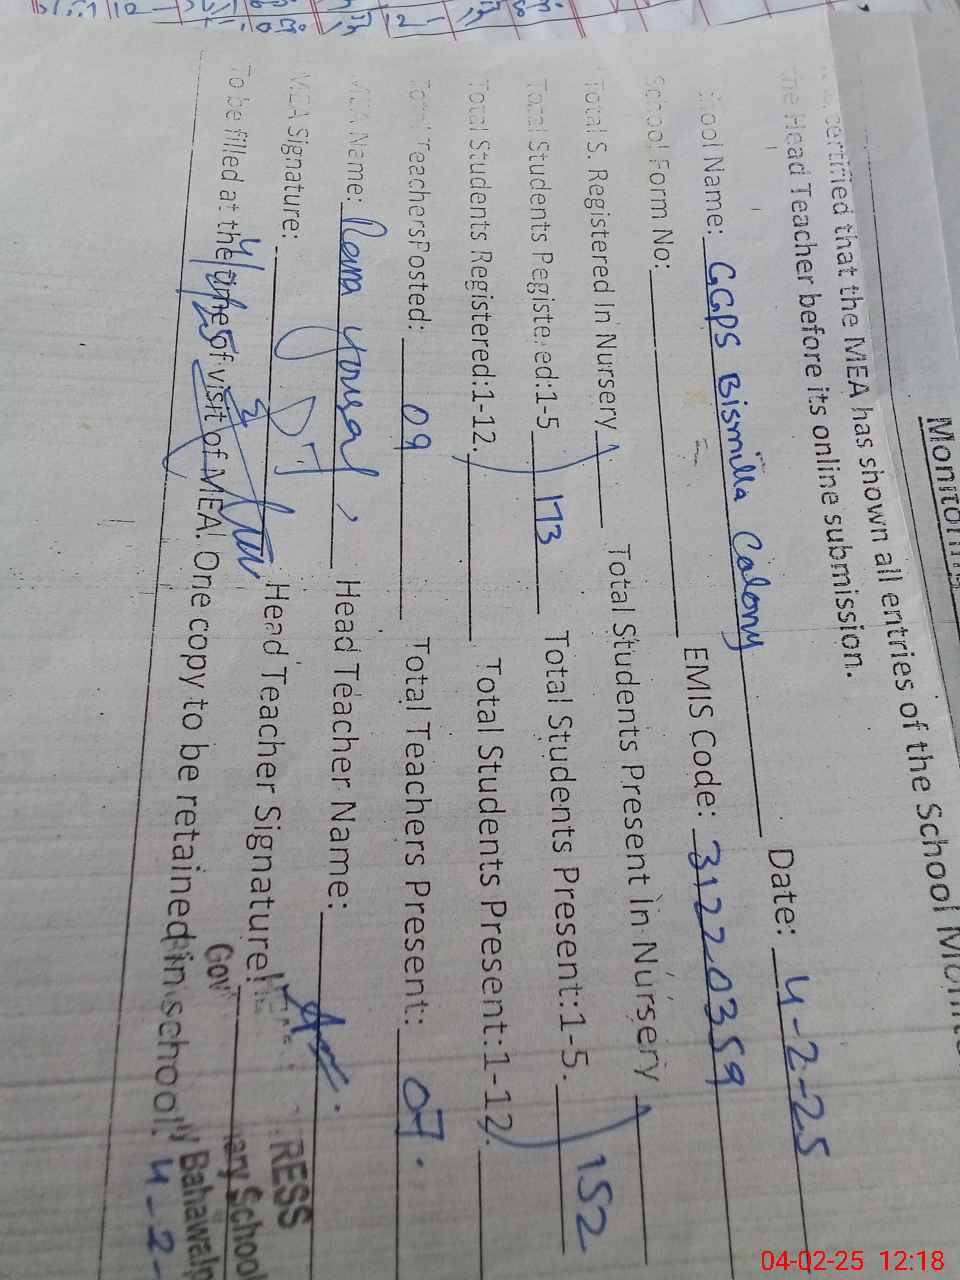 Monitoring
certified that the MEA has shown all entries of the School
the Head Teacher before its online submission.
School Name: GGPS Bismilla Calony Date: 4-2-25
School Form No: EMIS Code: 31220359
Total S. Registered In Nursery Total Students Present in Nursery
Total Students Registered:1-5 173 Total Students Present:1-5. 152
Total Students Registered:1-12. Total Students Present:1-12.
Total TeachersPosted: 09 Total Teachers Present: 07.
MEA Name: Head Teacher Name:
MEA Signature: Head Teacher Signature:
To be filled at the time of visit of MEA. One copy to be retained in school.
4/2/25
RESS
Gov ary School
Bahawalp
4-2-
04-02-25 12:18